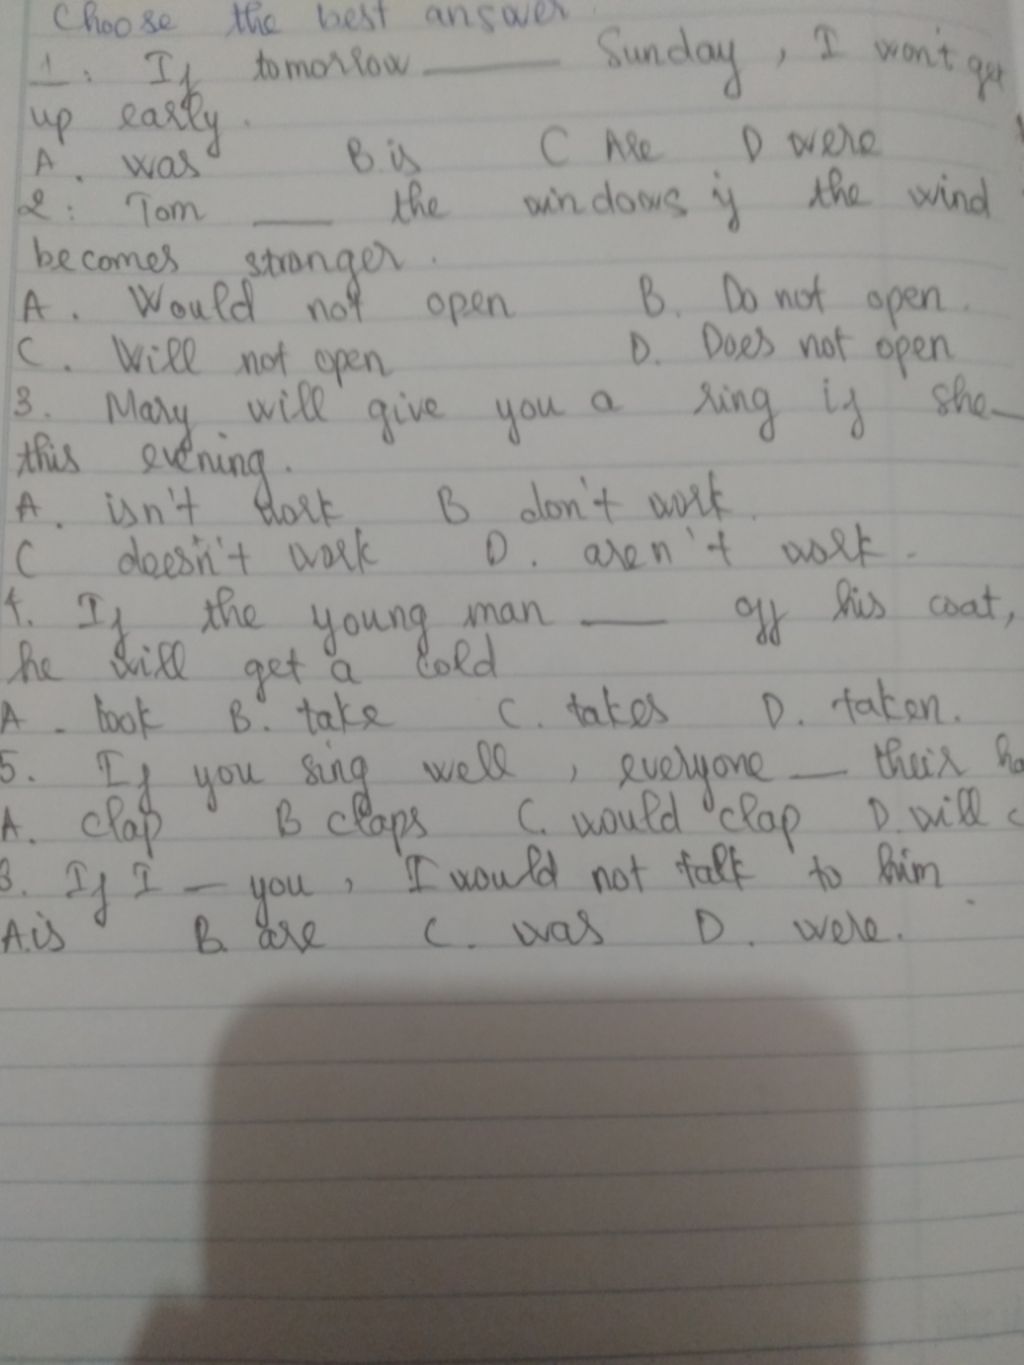 Choose the best answer.
1. If tomorrow ____ Sunday, I won't get
up early.
A. was B. is C Are D were
2: Tom ____ the windows if the wind
becomes stranger.
A. Would not open B. Do not open.
C. Will not open D. Does not open
3. Mary will give you a ring if she __
this evening.
A. isn't work B don't work.
C doesn't work D. aren't work.
4. If the young man ____ off his coat,
he will get a cold
A. took B. take C. takes D. taken.
5. If you sing well, everyone __ their
A. clap B claps C. would clap D. will
If I __ you, I would not talk to him
A. is B. are C. was D. were.